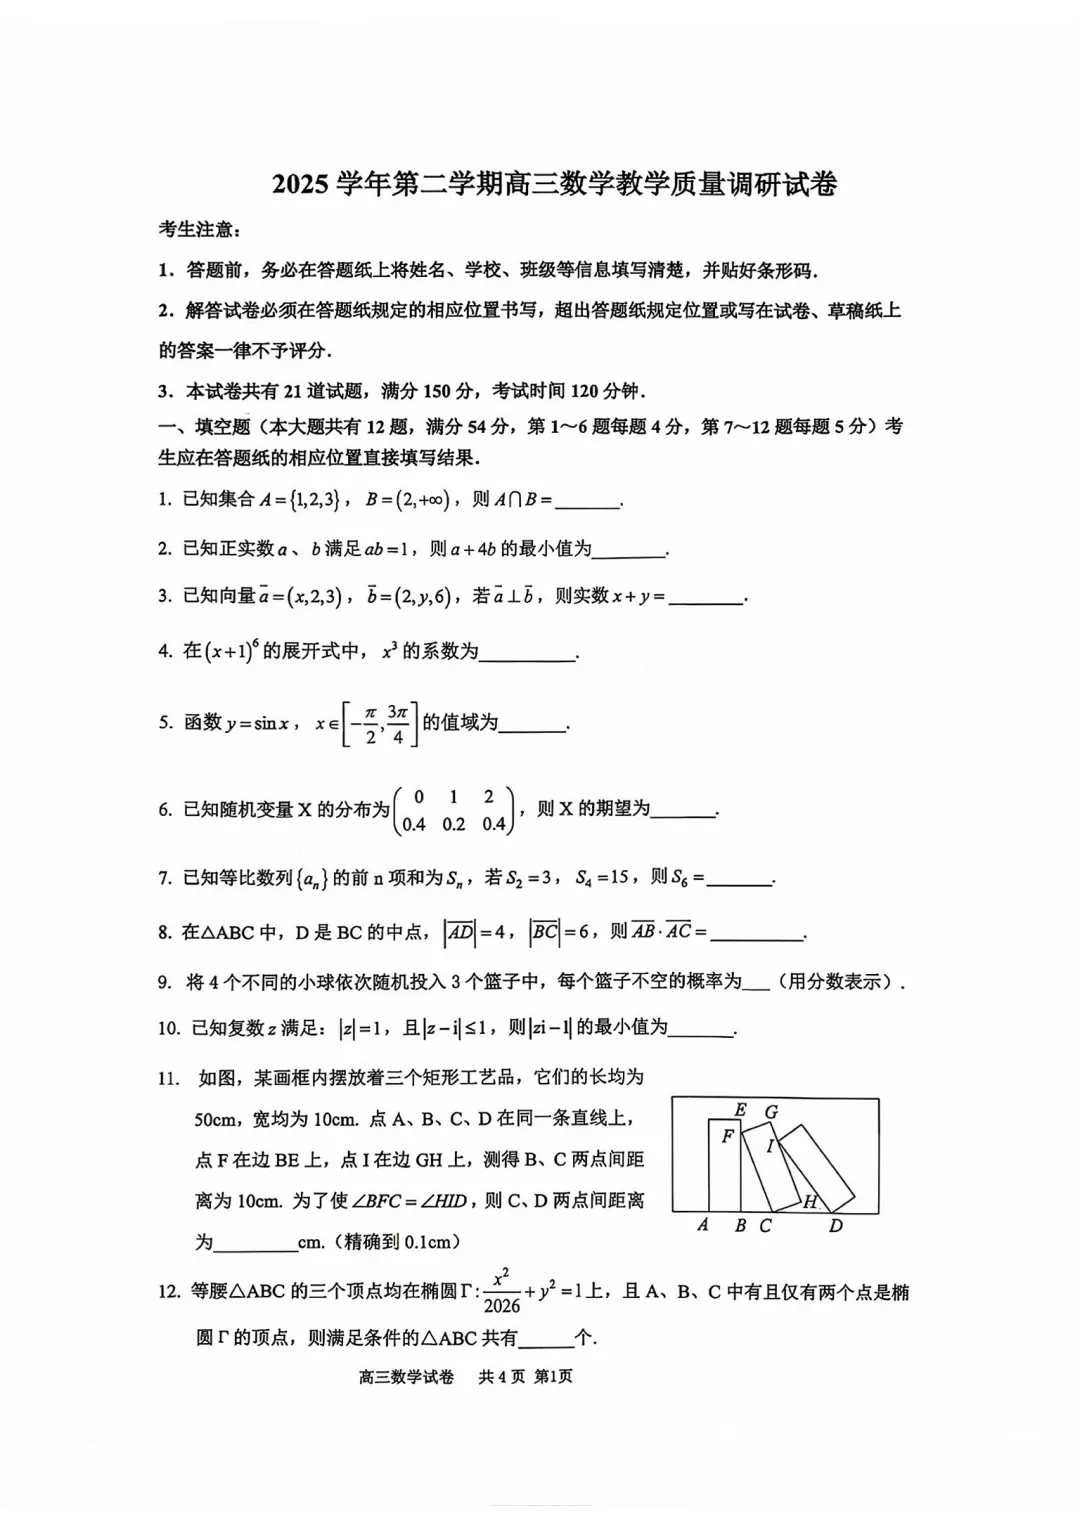 2025 学年第二学期高三数学教学质量调研试卷
考生注意:
1. 答题前，务必在答题纸上将姓名、学校、班级等信息填写清楚，并贴好条形码.
2. 解答试卷必须在答题纸规定的相应位置书写，超出答题纸规定位置或写在试卷、草稿纸上
的答案一律不予评分.
3. 本试卷共有 21 道试题，满分 150 分，考试时间 120 分钟.
一、填空题（本大题共有 12 题，满分 54 分，第 1～6 题每题 4 分，第 7～12 题每题 5 分）考
生应在答题纸的相应位置直接填写结果.
1. 已知集合 A={1,2,3}， B=(2,+∞)，则 A∩B=______.
2. 已知正实数 a 、 b 满足 ab=1，则 a+4b 的最小值为______.
3. 已知向量 a⃗=(x,2,3)， b⃗=(2,y,6)，若 a⃗⊥b⃗，则实数 x+y=______.
4. 在 (x+1)⁶ 的展开式中， x³ 的系数为______.
5. 函数 y=sin x， x∈[-π/2, 3π/4] 的值域为______.
6. 已知随机变量 X 的分布为 (0 1 2 / 0.4 0.2 0.4)，则 X 的期望为______.
7. 已知等比数列 {aₙ} 的前 n 项和为 Sₙ，若 S₂=3， S₄=15，则 S₆=______.
8. 在△ABC 中，D 是 BC 的中点， |AD⃗|=4， |BC⃗|=6，则 AB⃗·AC⃗=______.
9. 将 4 个不同的小球依次随机投入 3 个篮子中，每个篮子不空的概率为___（用分数表示）.
10. 已知复数 z 满足：|z|=1，且|z-i|≤1，则|zi-1|的最小值为______.
11. 如图，某画框内摆放着三个矩形工艺品，它们的长均为
50cm，宽均为 10cm. 点 A、B、C、D 在同一条直线上，
点 F 在边 BE 上，点 I 在边 GH 上，测得 B、C 两点间距
离为 10cm. 为了使∠BFC=∠HID，则 C、D 两点间距离
为______cm.（精确到 0.1cm）
E G
F
I
H
A B C D
12. 等腰△ABC 的三个顶点均在椭圆 Γ: x²/2026 + y²=1 上，且 A、B、C 中有且仅有两个点是椭
圆 Γ 的顶点，则满足条件的△ABC 共有______个.
高三数学试卷 共 4 页 第1页